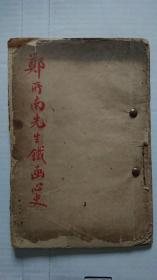 鄭所南先生鐵函心史